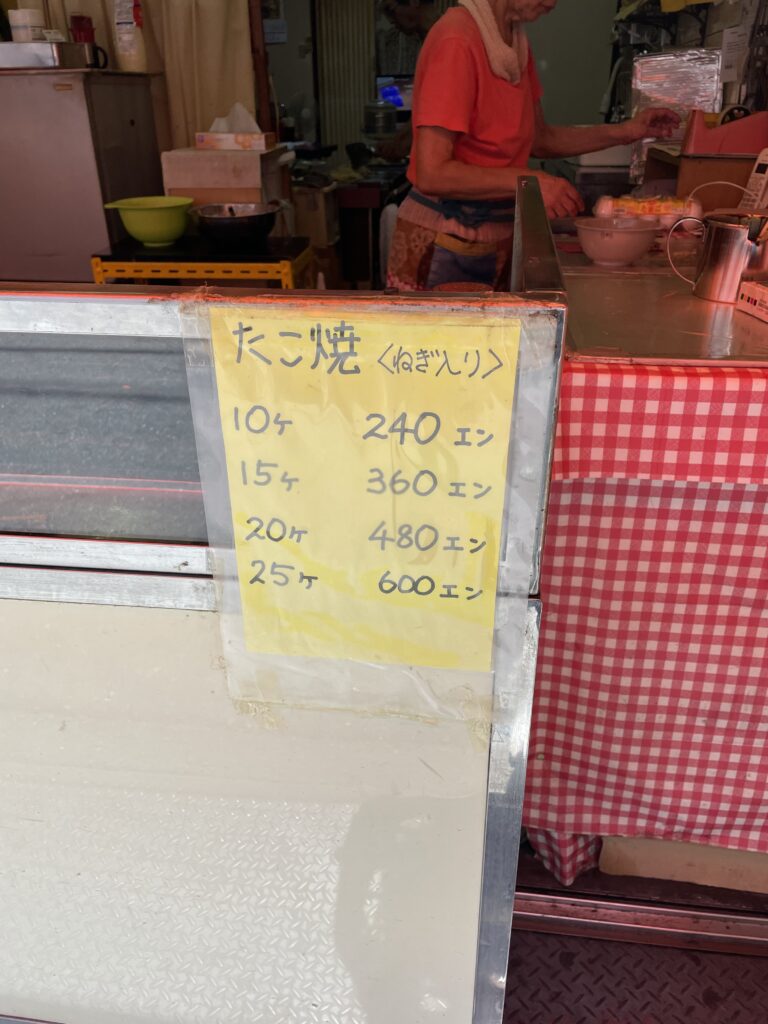 たこ焼 〈ねぎ入り〉
10ケ 240エン
15ケ 360エン
20ケ 480エン
25ケ 600エン